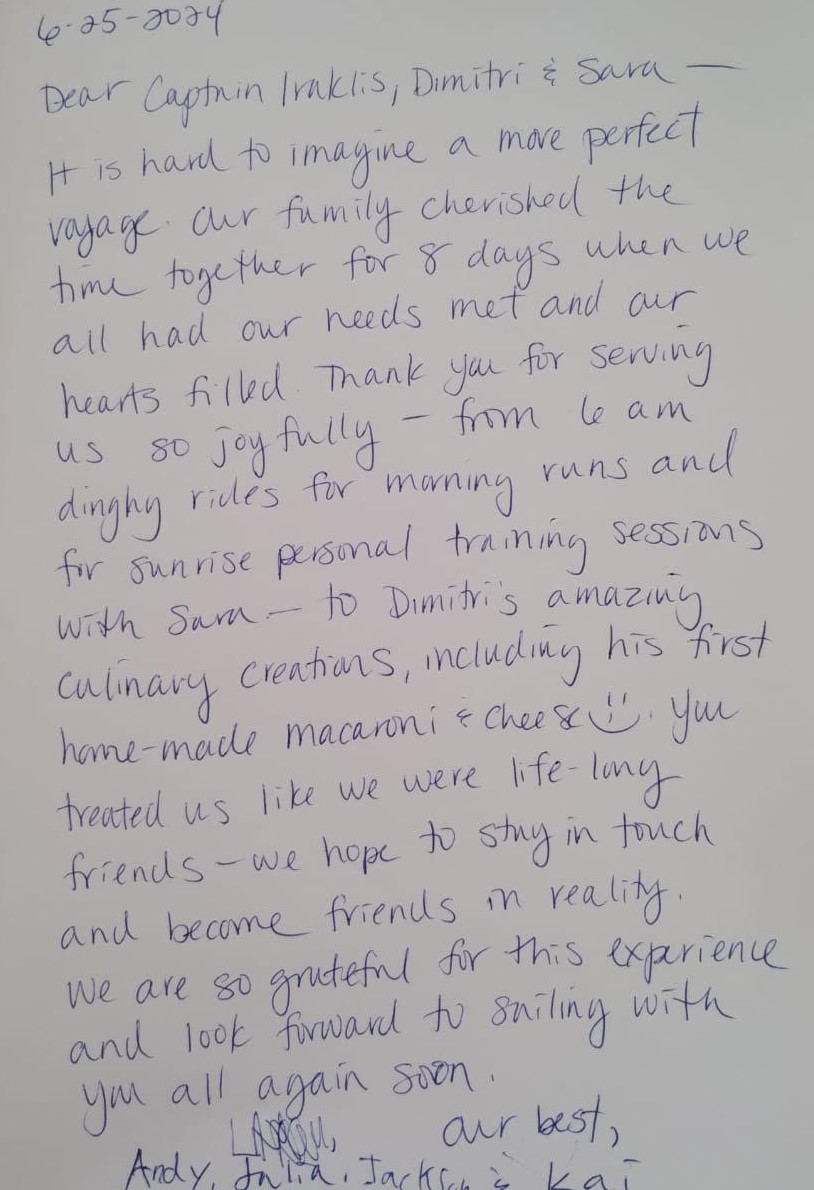 6-25-2024
Dear Captain Iraklis, Dimitri & Sara —
It is hard to imagine a more perfect
voyage. Our family cherished the
time together for 8 days when we
all had our needs met and our
hearts filled. Thank you for serving
us so joyfully — from 6 am
dinghy rides for morning runs and
for sunrise personal training sessions
with Sara — to Dimitri's amazing
culinary creations, including his first
home-made macaroni & cheese :). You
treated us like we were life-long
friends — we hope to stay in touch
and become friends in reality.
We are so grateful for this experience
and look forward to sailing with
you all again soon.
Our best,
Andy, Julia, Jackson & Kai